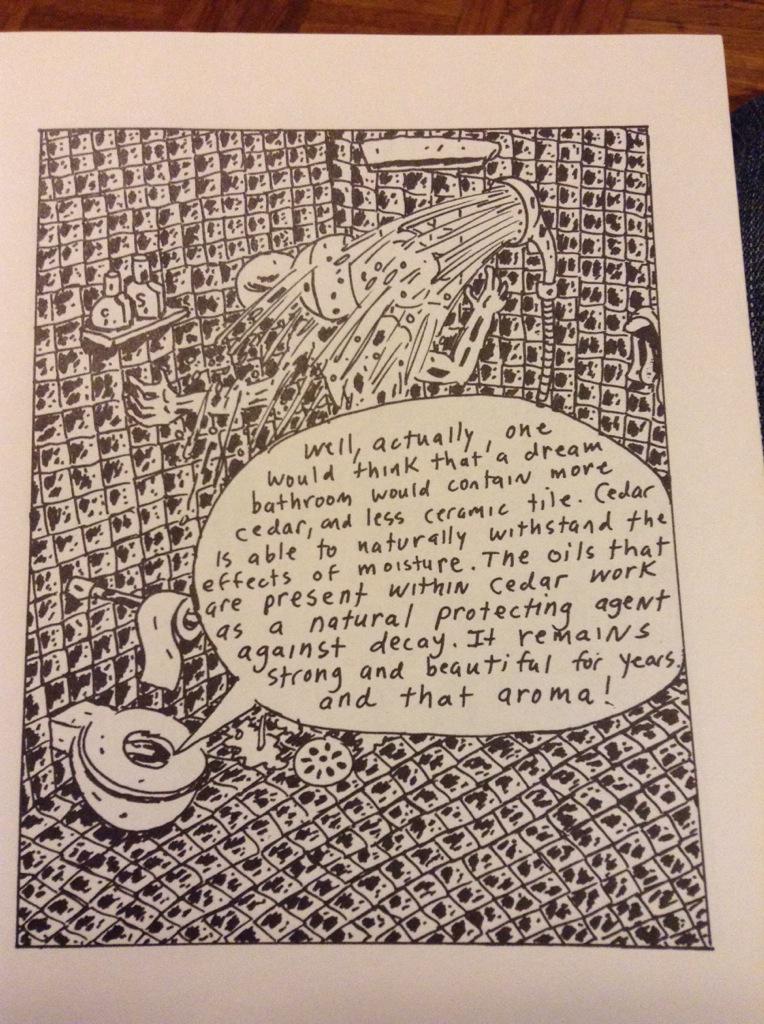 C S
Well, actually, one
would think that a dream
bathroom would contain more
cedar, and less ceramic tile. Cedar
is able to naturally withstand the
effects of moisture. The oils that
are present within cedar work
as a natural protecting agent
against decay. It remains
strong and beautiful for years.
and that aroma!